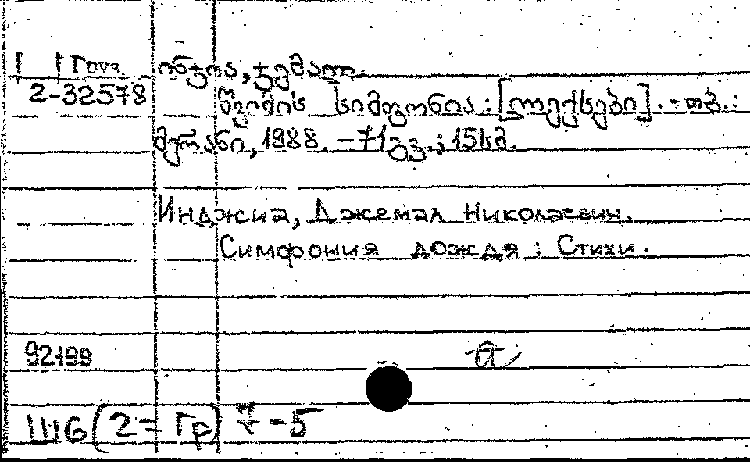 Груз. ინჯია, ჯემალ.
2-32578 წვიმის სიმფონია : [ლექსები]. - თბ. :
მერანი, 1988. - 71 გვ. ; 15 სმ.
Инджиа, Джемал Николаевич.
Симфония дождя : Стихи.
92199
Ш6(2=Гр)7-5